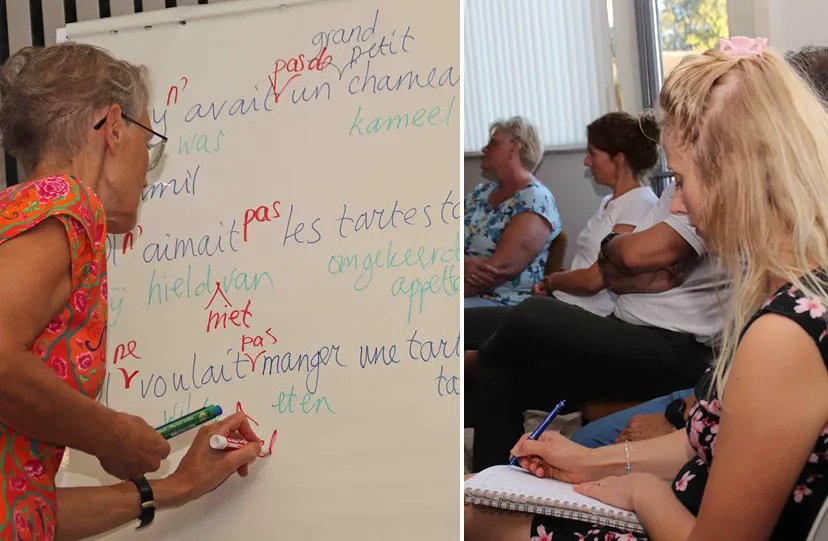 grand
pas de petit
n'
y avait un chameau
was kameel
mil
pas
n'aimait les tartes
hield van omgekeerde
met appelt
ne pas
voulait manger une tart
eten ta